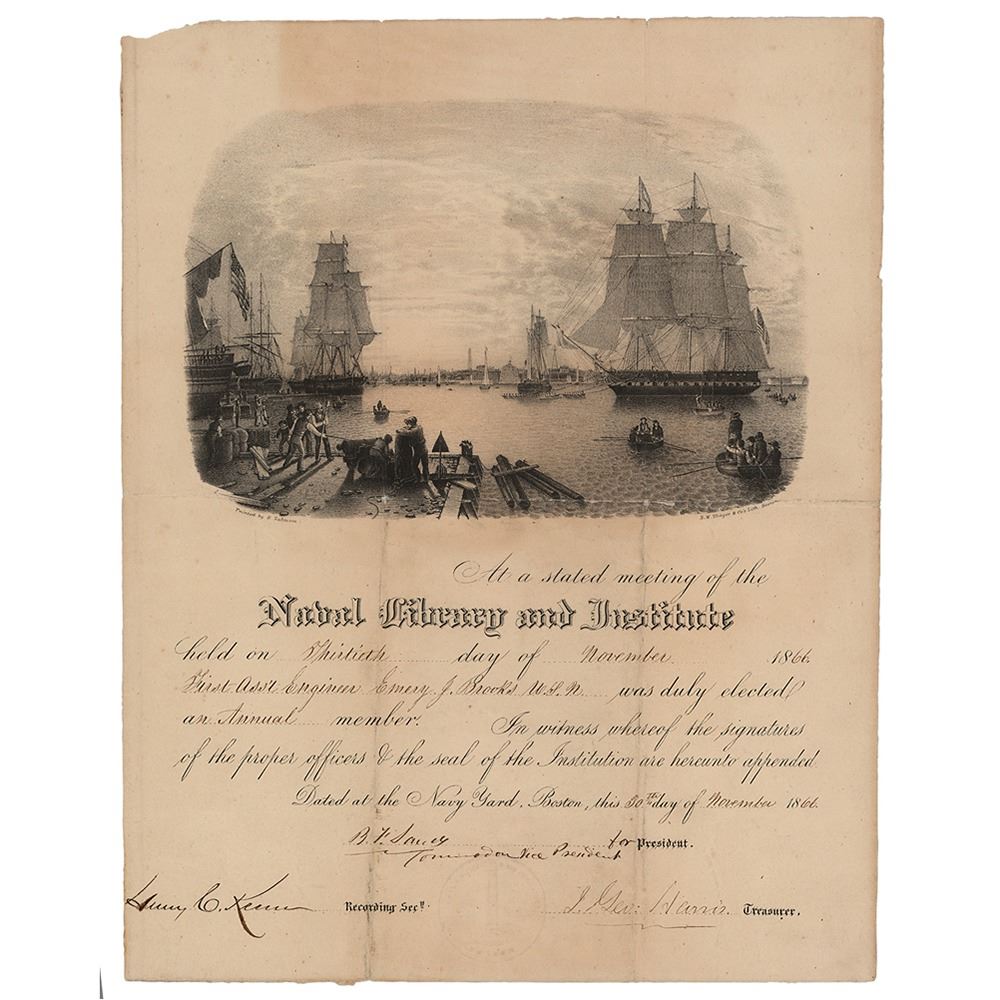 Painted by R. Salmon
B.W. Thayer & Co's Lith. Boston
At a stated meeting of the
Naval Library and Institute
held on Thirtieth day of November 1866
First Asst Engineer Emery J. Brooks U.S.N. was duly elected
an Annual member. In witness whereof the signatures
of the proper officers & the seal of the Institution are hereunto appended.
Dated at the Navy Yard, Boston, this 30th day of November 1866.
B. F. Sands for President.
Commodore Vice President
Henry C. Recording Secy.
J. Geo: Harris. Treasurer.